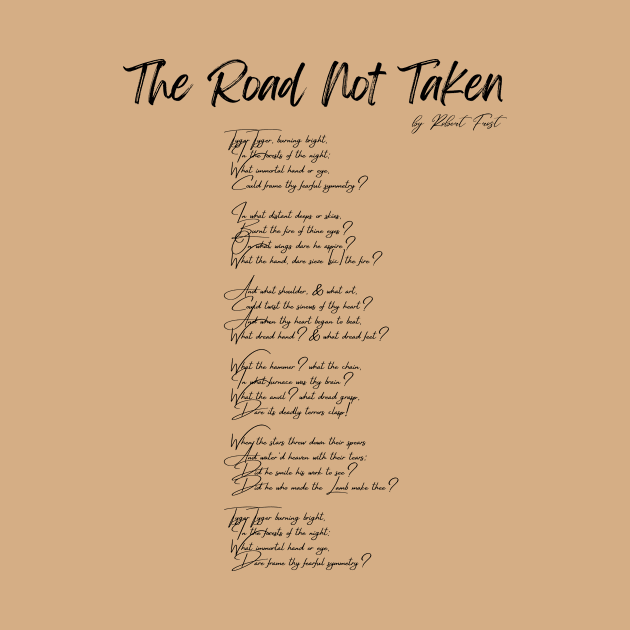 The Road Not Taken
by Robert Frost
Tyger Tyger, burning bright,
In the forests of the night;
What immortal hand or eye,
Could frame thy fearful symmetry?
In what distant deeps or skies,
Burnt the fire of thine eyes?
On what wings dare he aspire?
What the hand, dare sieze [sic] the fire?
And what shoulder, & what art,
Could twist the sinews of thy heart?
And when thy heart began to beat,
What dread hand? & what dread feet?
What the hammer? what the chain,
In what furnace was thy brain?
What the anvil? what dread grasp,
Dare its deadly terrors clasp!
When the stars threw down their spears
And water'd heaven with their tears;
Did he smile his work to see?
Did he who made the Lamb make thee?
Tyger Tyger burning bright,
In the forests of the night;
What immortal hand or eye,
Dare frame thy fearful symmetry?